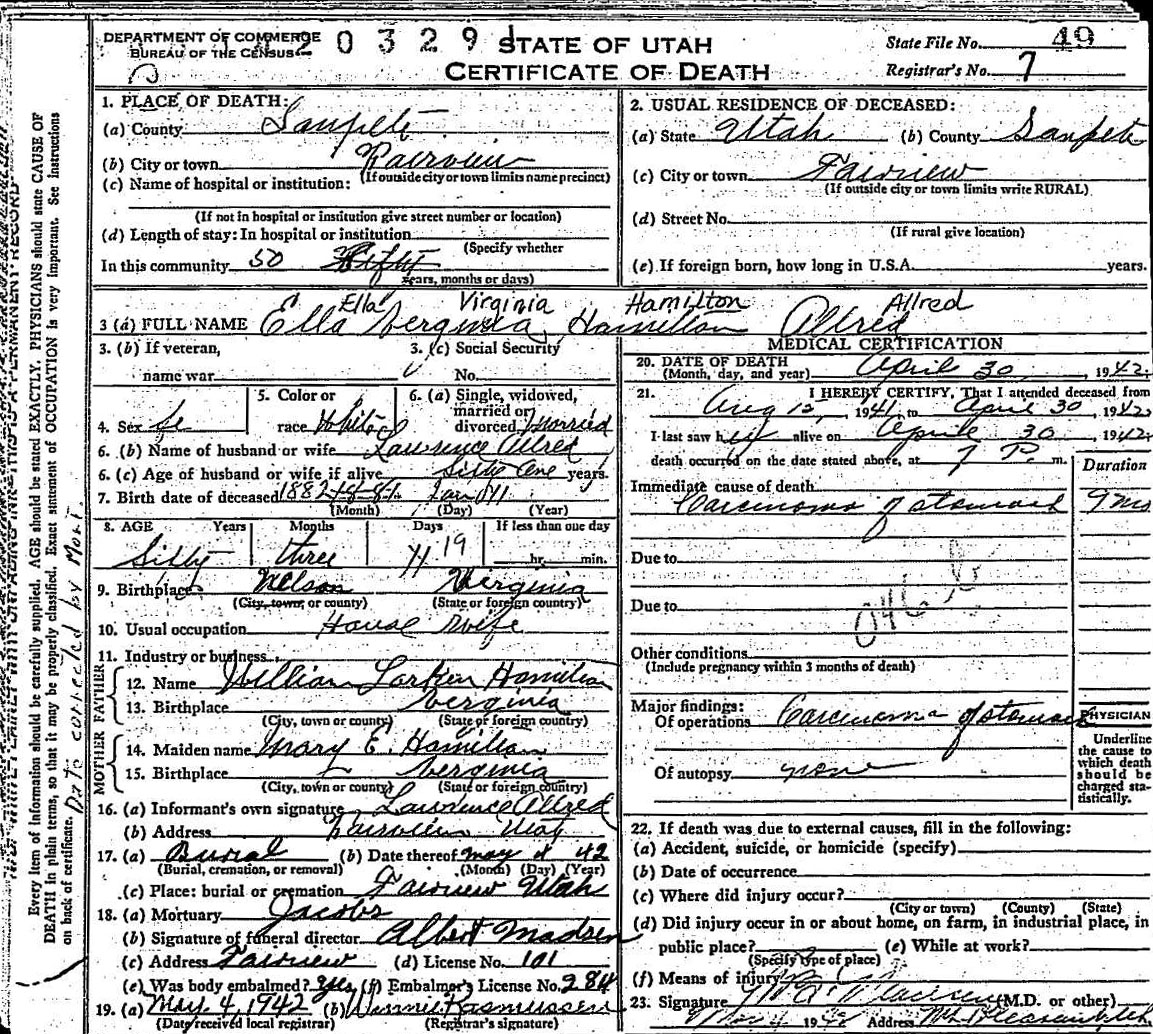 DEPARTMENT OF COMMERCE
BUREAU OF THE CENSUS
20329
STATE OF UTAH
CERTIFICATE OF DEATH
State File No. 49
Registrar's No. 7
Every item of information should be carefully supplied. AGE should be stated EXACTLY. PHYSICIANS should state CAUSE OF
DEATH in plain terms, so that it may be properly classified. Exact statement of OCCUPATION is very important. See instructions
on back of certificate. corrected by Mort.
1. PLACE OF DEATH:
(a) County Sanpete
(b) City or town Fairview
(If outside city or town limits name precinct)
(c) Name of hospital or institution:
(If not in hospital or institution give street number or location)
(d) Length of stay: In hospital or institution
(Specify whether
In this community 50 Fifty
years, months or days)
2. USUAL RESIDENCE OF DECEASED:
(a) State Utah (b) County Sanpete
(c) City or town Fairview
(If outside city or town limits write RURAL)
(d) Street No.
(If rural give location)
(e) If foreign born, how long in U.S.A. years.
Ella Virginia Hamilton Allred
3 (a) FULL NAME Ella Verginia Hamilton Allred
3. (b) If veteran,
name war
3. (c) Social Security
No.
4. Sex fe
5. Color or
race White
6. (a) Single, widowed,
married or
divorced Married
6. (b) Name of husband or wife Lawrence Allred
6. (c) Age of husband or wife if alive Sixty One years.
7. Birth date of deceased 1882 Jan 11
(Month) (Day) (Year)
8. AGE Years Months Days If less than one day
Sixty three 19 hr. min.
9. Birthplace Nelson Verginia
(City, town, or county) (State or foreign country)
10. Usual occupation House Wife
11. Industry or business
FATHER
12. Name William Larken Hamilton
13. Birthplace Verginia
(City, town or county) (State or foreign country)
MOTHER
14. Maiden name Mary E. Hamilton
15. Birthplace Verginia
(City, town or county) (State or foreign country)
16. (a) Informant's own signature Lawrence Allred
(b) Address Fairview Utah
17. (a) Burial (b) Date thereof May 4 42
(Burial, cremation, or removal) (Month) (Day) (Year)
(c) Place: burial or cremation Fairview Utah
18. (a) Mortuary Jacobs
(b) Signature of funeral director Albert Madsen
(c) Address Fairview (d) License No. 101
(e) Was body embalmed? Yes (f) Embalmer's License No. 284
19. (a) May 4, 1942 (b) Winnie Rasmussen
(Date received local registrar) (Registrar's signature)
MEDICAL CERTIFICATION
20. DATE OF DEATH
(Month, day, and year) April 30, 1942.
21. I HEREBY CERTIFY, That I attended deceased from
Aug 12, 1941, to April 30, 1942.
I last saw her alive on April 30 1942.
death occurred on the date stated above, at 7 P. m.
Duration
Immediate cause of death
Carcinoma of stomach 9 mo
Due to
Due to
Other conditions
(Include pregnancy within 3 months of death)
Major findings:
Of operations Carcinoma of stomach
Of autopsy none
PHYSICIAN
Underline
the cause to
which death
should be
charged sta-
tistically.
22. If death was due to external causes, fill in the following:
(a) Accident, suicide, or homicide (specify)
(b) Date of occurrence
(c) Where did injury occur?
(City or town) (County) (State)
(d) Did injury occur in or about home, on farm, in industrial place, in
public place? (e) While at work?
(Specify type of place)
(f) Means of injury
23. Signature (M.D. or other)
May 4 1942 Address Mt. Pleasant Utah